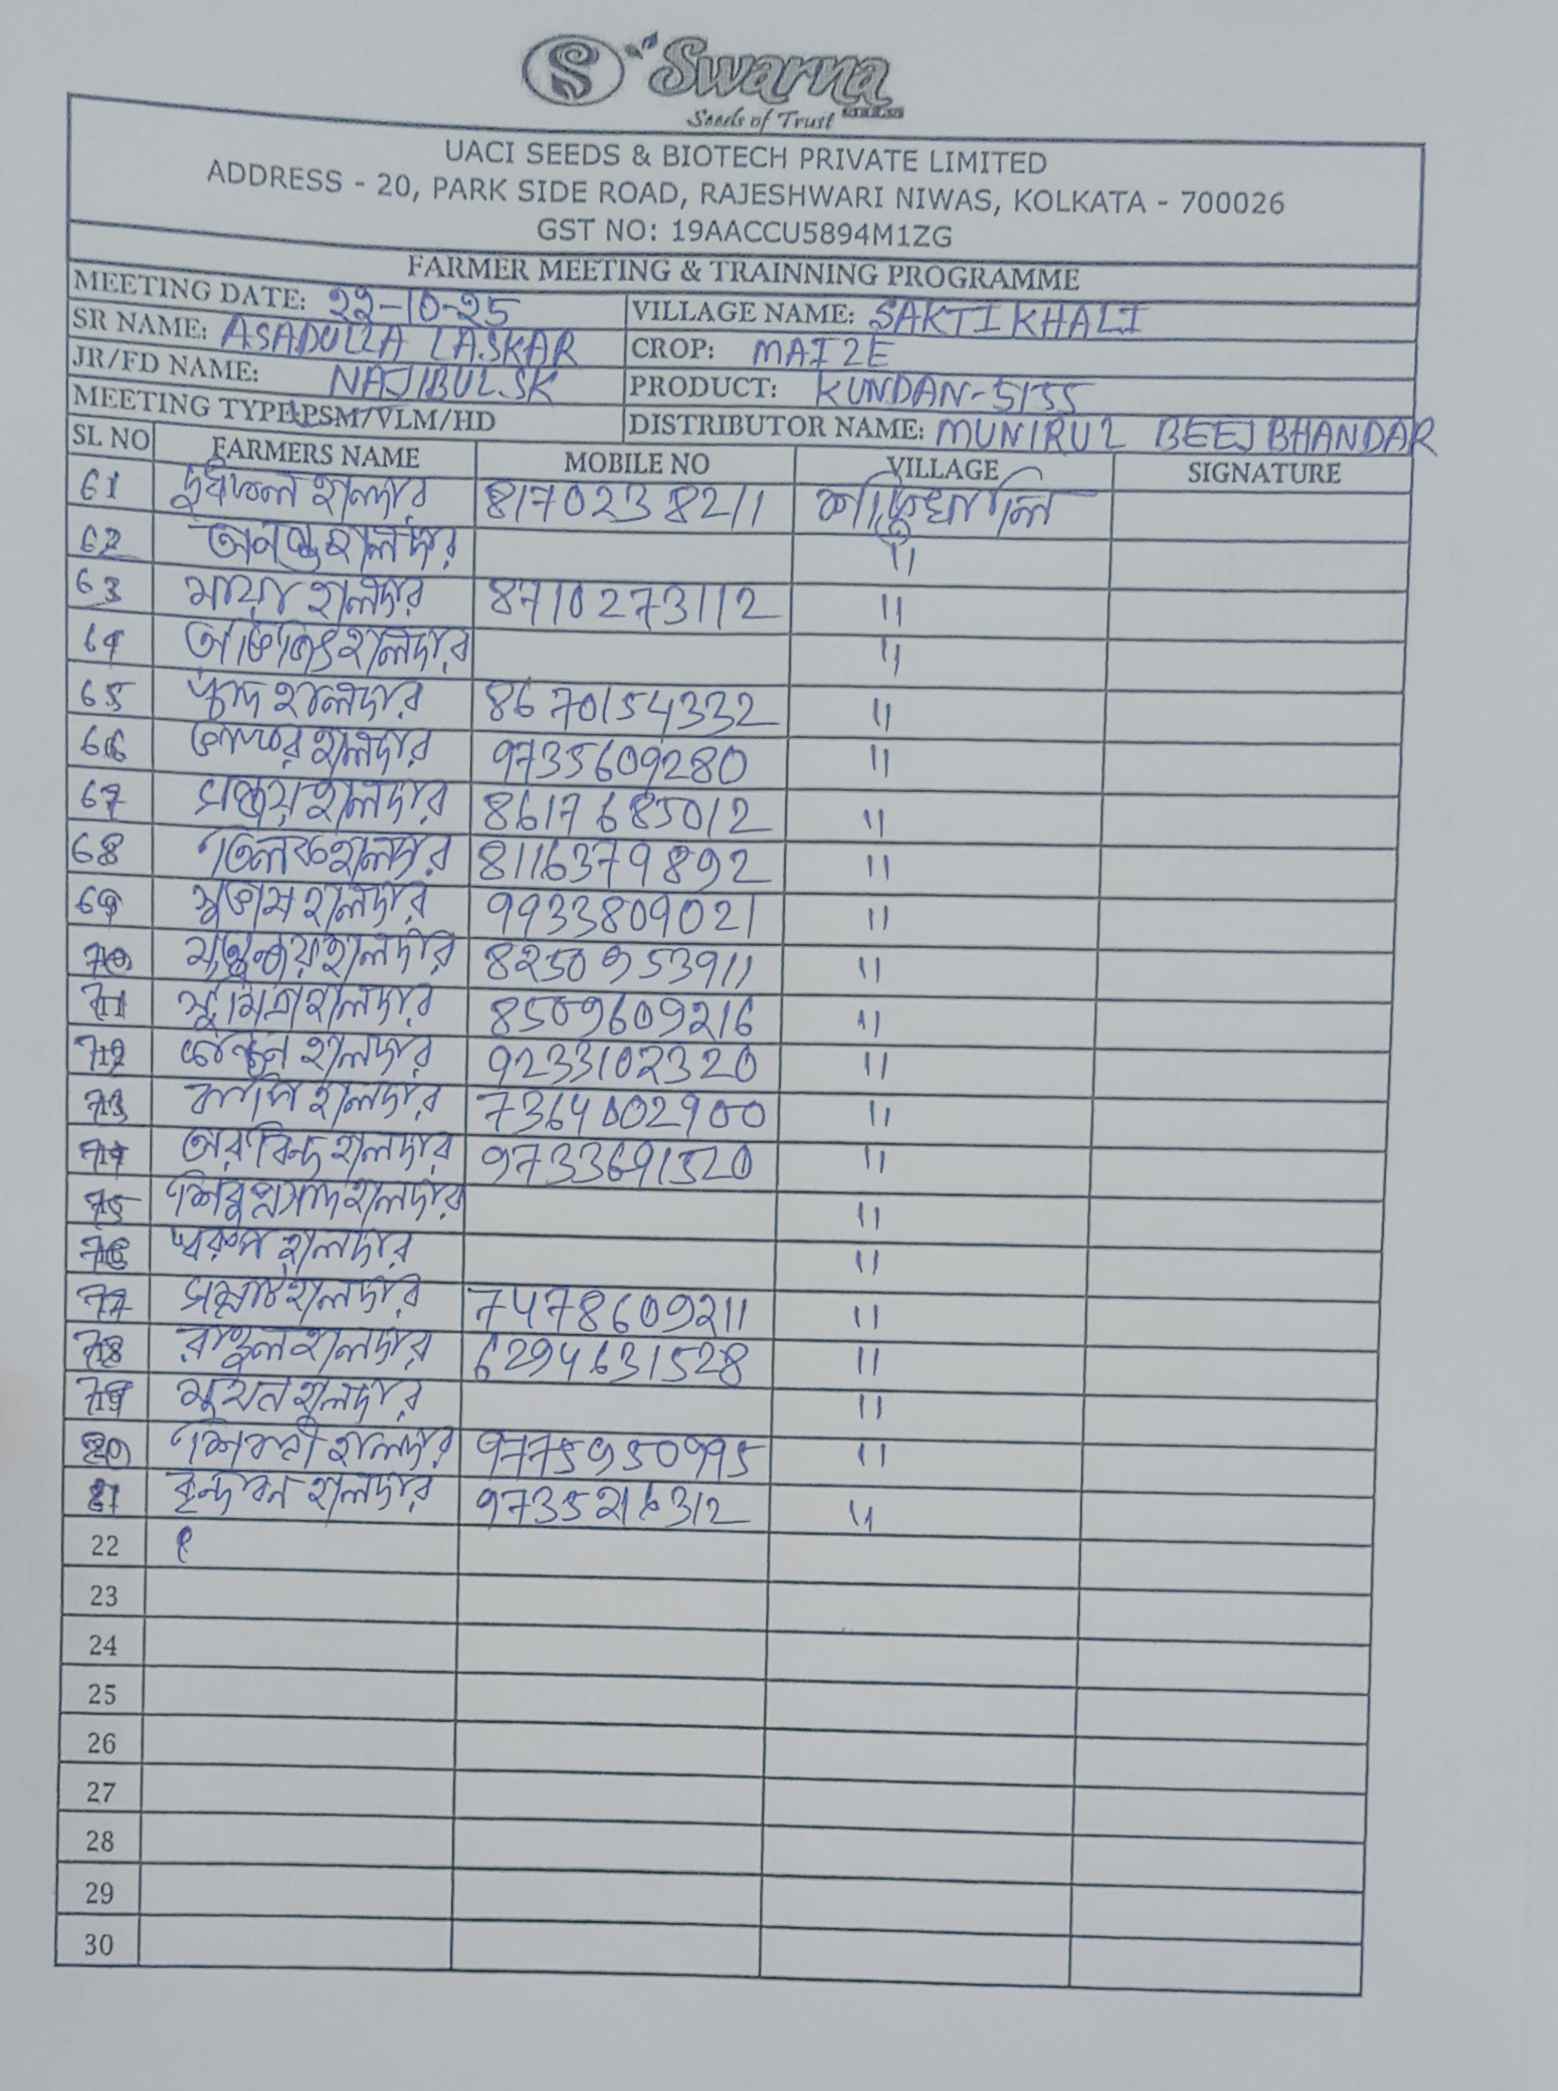 S Swarna
Seeds of Trust
UACI SEEDS & BIOTECH PRIVATE LIMITED
ADDRESS - 20, PARK SIDE ROAD, RAJESHWARI NIWAS, KOLKATA - 700026
GST NO: 19AACCU5894M1ZG
FARMER MEETING & TRAINNING PROGRAMME
MEETING DATE: 22-10-25 VILLAGE NAME: SAKTIKHALI
SR NAME: ASADULLA LASKAR CROP: MAIZE
JR/FD NAME: NAJIBUL.SK PRODUCT: KUNDAN-5155
MEETING TYPE: PSM/VLM/HD DISTRIBUTOR NAME: MUNIRUL BEEJ BHANDAR
SL NO FARMERS NAME MOBILE NO VILLAGE SIGNATURE
61 হালদার 8170238211
62 অনন্ত হালদার 11
63 মায়া হালদার 8710273112 11
64 অভিজিৎ হালদার 11
65 হালদার 8670154332 11
66 হালদার 9735609280 11
67 সঞ্জয় হালদার 8617685012 11
68 তিলক হালদার 8116379892 11
69 সুভাষ হালদার 9933809021 11
70 মৃত্যুঞ্জয় হালদার 8250953911 11
71 সুমিত্রা হালদার 8509609216 11
72 হালদার 9233102320 11
73 হালদার 7364002900 11
74 অরবিন্দ হালদার 9733691520 11
75 শিবুপ্রসাদ হালদার 11
76 স্বরুপ হালদার 11
77 সম্রাট হালদার 7478609211 11
78 রাহুল হালদার 6294631528 11
79 হালদার 11
80 হালদার 9775950995 11
81 বৃন্দাবন হালদার 9735216312 11
22
23
24
25
26
27
28
29
30